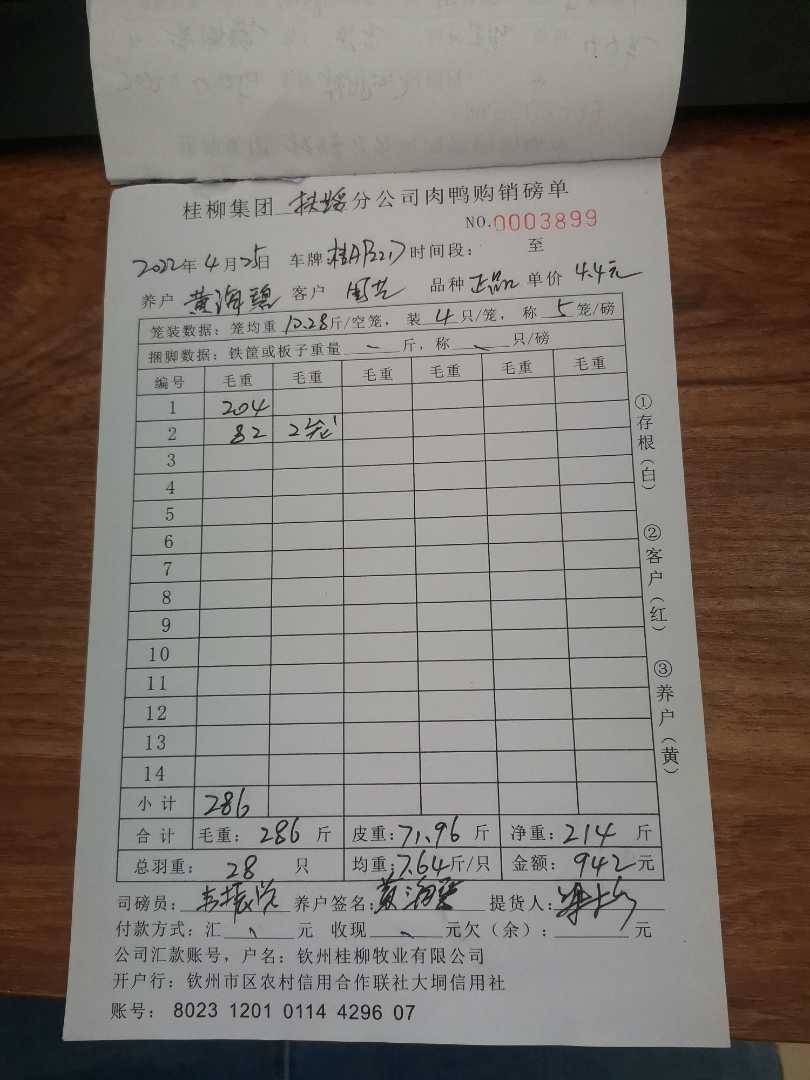 桂柳集团 扶绥 分公司肉鸭购销磅单
NO.0003899
2022年4月25日 车牌 桂A 时间段： 至
养户 黄海碧 客户 品种 正品 单价 4.4元
笼装数据：笼均重 10.28斤/空笼，装 4 只/笼，称 5 笼/磅
捆脚数据：铁筐或板子重量 斤，称 只/磅
编号 毛重 毛重 毛重 毛重 毛重 毛重
1 204
2 82 2笼
3
4
5
6
7
8
9
10
11
12
13
14
小计 286
合计 毛重：286 斤 皮重：71.96 斤 净重：214 斤
总羽重：28 只 均重：7.64斤/只 金额：942元
司磅员： 养户签名： 提货人：
付款方式：汇 元 收现 元欠（余）： 元
公司汇款账号，户名：钦州桂柳牧业有限公司
开户行：钦州市区农村信用合作联社大垌信用社
账号： 8023 1201 0114 4296 07
①存根（白）
②客户（红）
③养户（黄）